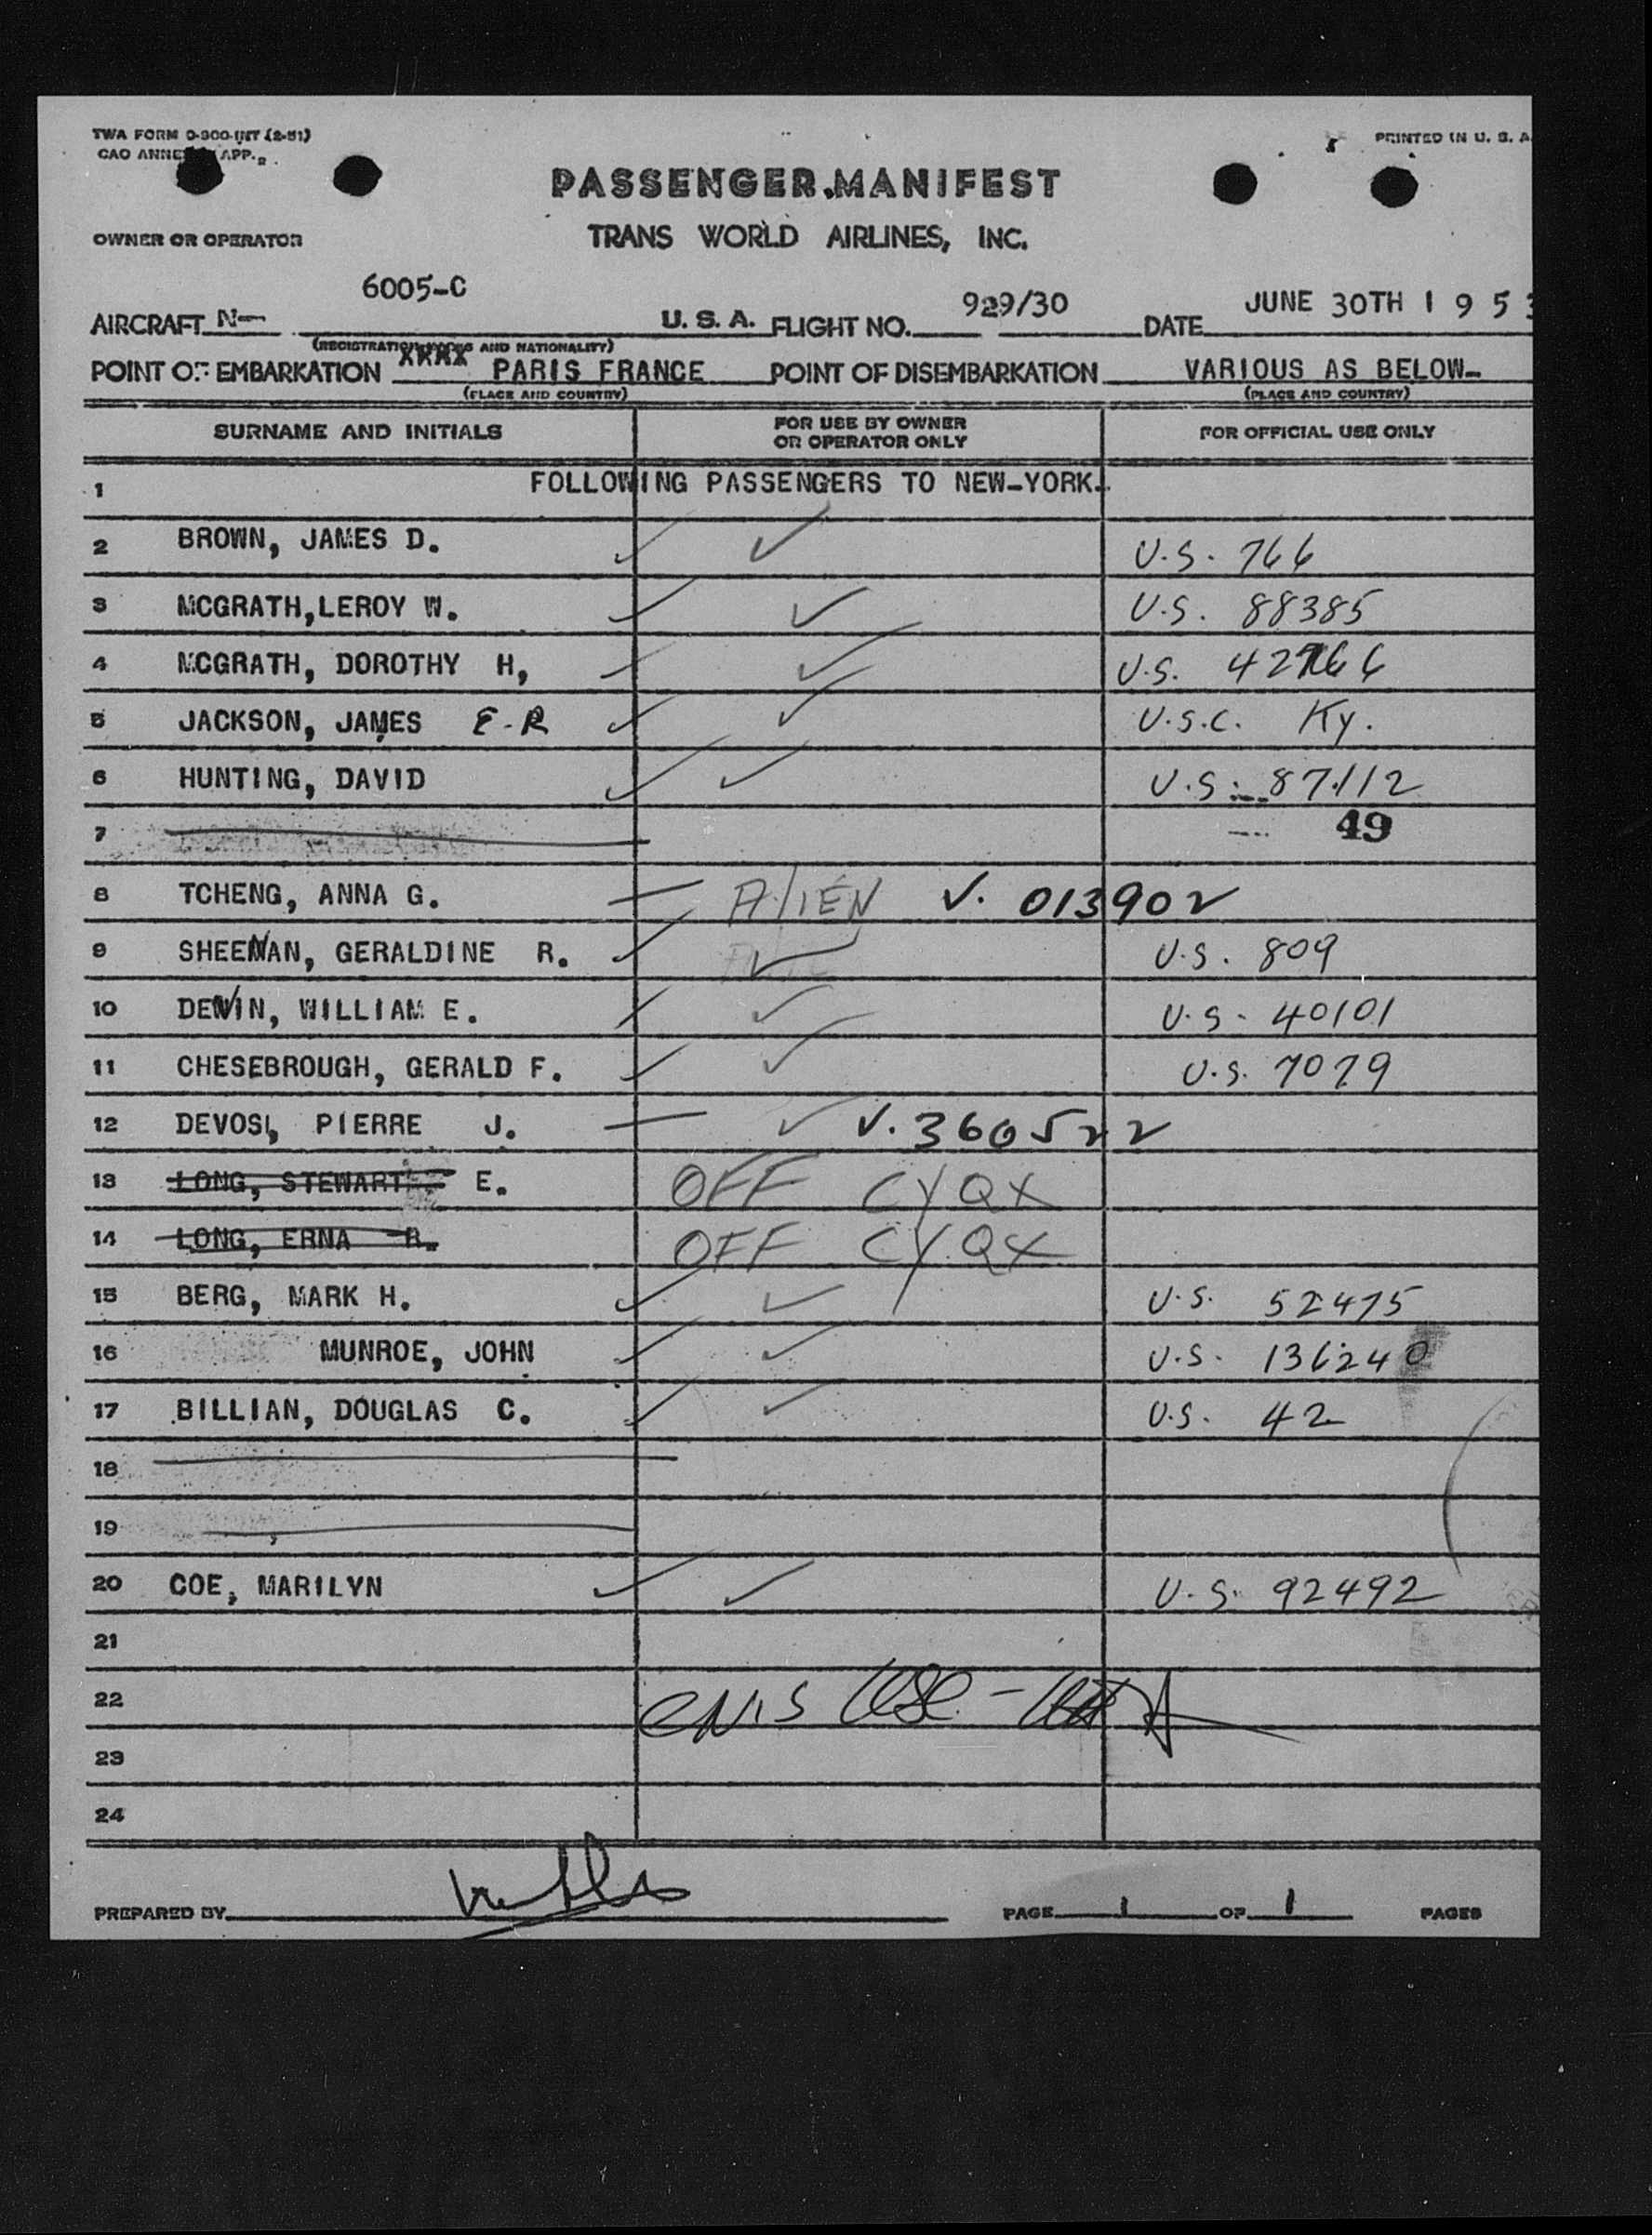 TWA FORM 0-300-INT (2-51)
PRINTED IN U. S. A.
CAO ANNEX APP.
PASSENGER MANIFEST
OWNER OR OPERATOR TRANS WORLD AIRLINES, INC.
6005-C 929/30 JUNE 30TH 1953
AIRCRAFT N— U. S. A. FLIGHT NO. DATE
(REGISTRATION MARKS AND NATIONALITY)
POINT OF EMBARKATION XXXX PARIS FRANCE POINT OF DISEMBARKATION VARIOUS AS BELOW-
(PLACE AND COUNTRY) (PLACE AND COUNTRY)
SURNAME AND INITIALS FOR USE BY OWNER OR OPERATOR ONLY FOR OFFICIAL USE ONLY
1 FOLLOWING PASSENGERS TO NEW-YORK.
2 BROWN, JAMES D. ✓ ✓ U.S. 766
3 MCGRATH,LEROY W. ✓ ✓ U.S. 88385
4 MCGRATH, DOROTHY H, ✓ ✓ U.S.
5 JACKSON, JAMES E-R ✓ ✓ U.S.C. Ky.
6 HUNTING, DAVID ✓ ✓ U.S. 87112
7 49
8 TCHENG, ANNA G. — AlIEN V. 013902
9 SHEEHAN, GERALDINE R. ✓ ✓ U.S. 809
10 DEVIN, WILLIAM E. ✓ ✓ U.S. 40101
11 CHESEBROUGH, GERALD F. ✓ ✓ U.S. 7079
12 DEVOS, PIERRE J. — ✓ V. 360522
13 LONG, STEWART E. OFF CYQX
14 LONG, ERNA R. OFF CYQX
15 BERG, MARK H. ✓ ✓ U.S. 52475
16 MUNROE, JOHN ✓ ✓ U.S. 136240
17 BILLIAN, DOUGLAS C. ✓ ✓ U.S. 42
18
19
20 COE, MARILYN ✓ ✓ U.S. 92492
21
22
23
24
PREPARED BY PAGE 1 OF 1 PAGES